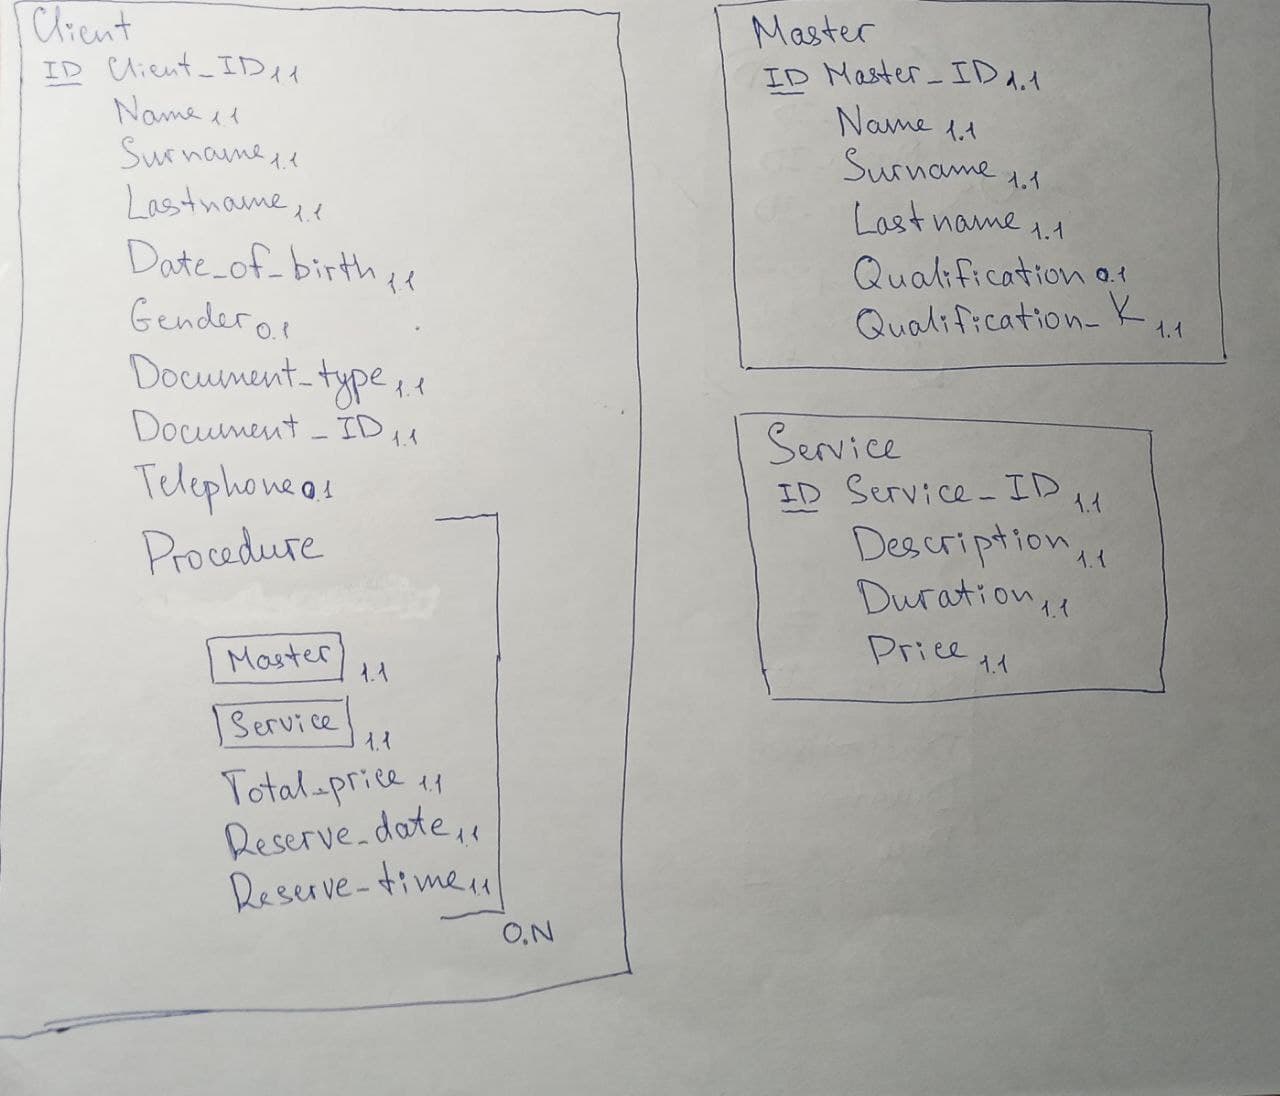 Client
ID Client_ID 1.1
Name 1.1
Surname 1.1
Lastname 1.1
Date_of_birth 1.1
Gender 0.1
Document_type 1.1
Document_ID 1.1
Telephone 0.1
Procedure
Master 1.1
Service 1.1
Total_price 1.1
Reserve_date 1.1
Reserve_time 1.1
0.N
Master
ID Master_ID 1.1
Name 1.1
Surname 1.1
Lastname 1.1
Qualification 0.1
Qualification_K 1.1
Service
ID Service_ID 1.1
Description 1.1
Duration 1.1
Price 1.1